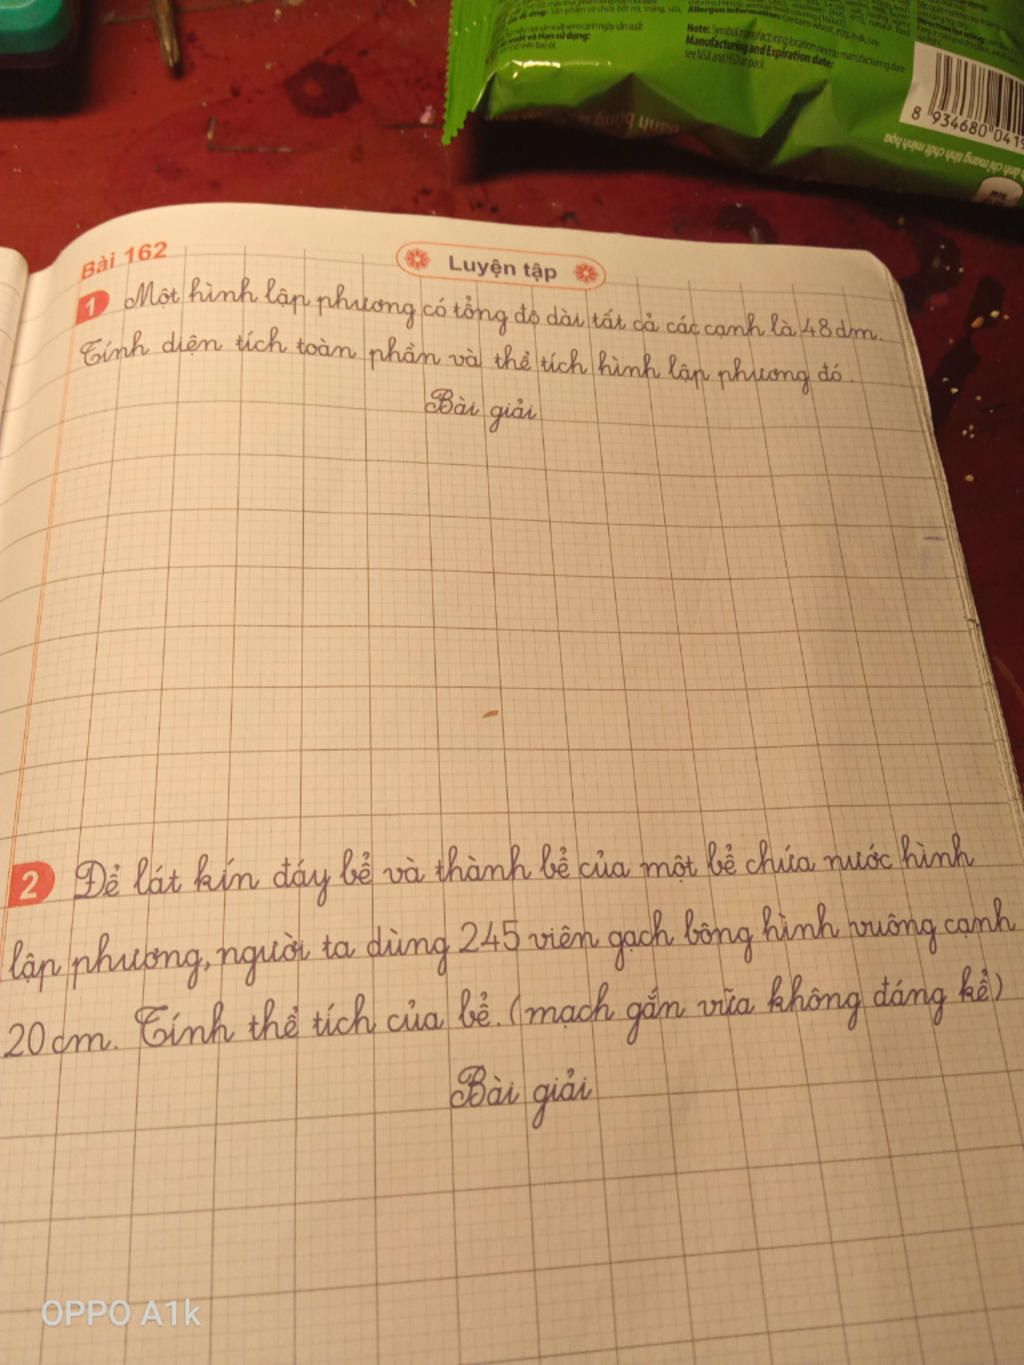 Note: Symbol manufacturing location next to manufacturing date
Manufacturing and Expiration date:
see NSX and HSD on pack.
8 934680 0419
Bài 162
Luyện tập
1 Một hình lập phương có tổng độ dài tất cả các cạnh là 48dm.
Tính diện tích toàn phần và thể tích hình lập phương đó.
Bài giải
2 Để lát kín đáy bể và thành bể của một bể chứa nước hình
lập phương, người ta dùng 245 viên gạch bông hình vuông cạnh
20cm. Tính thể tích của bể. (mạch gắn vữa không đáng kể)
Bài giải
OPPO A1k